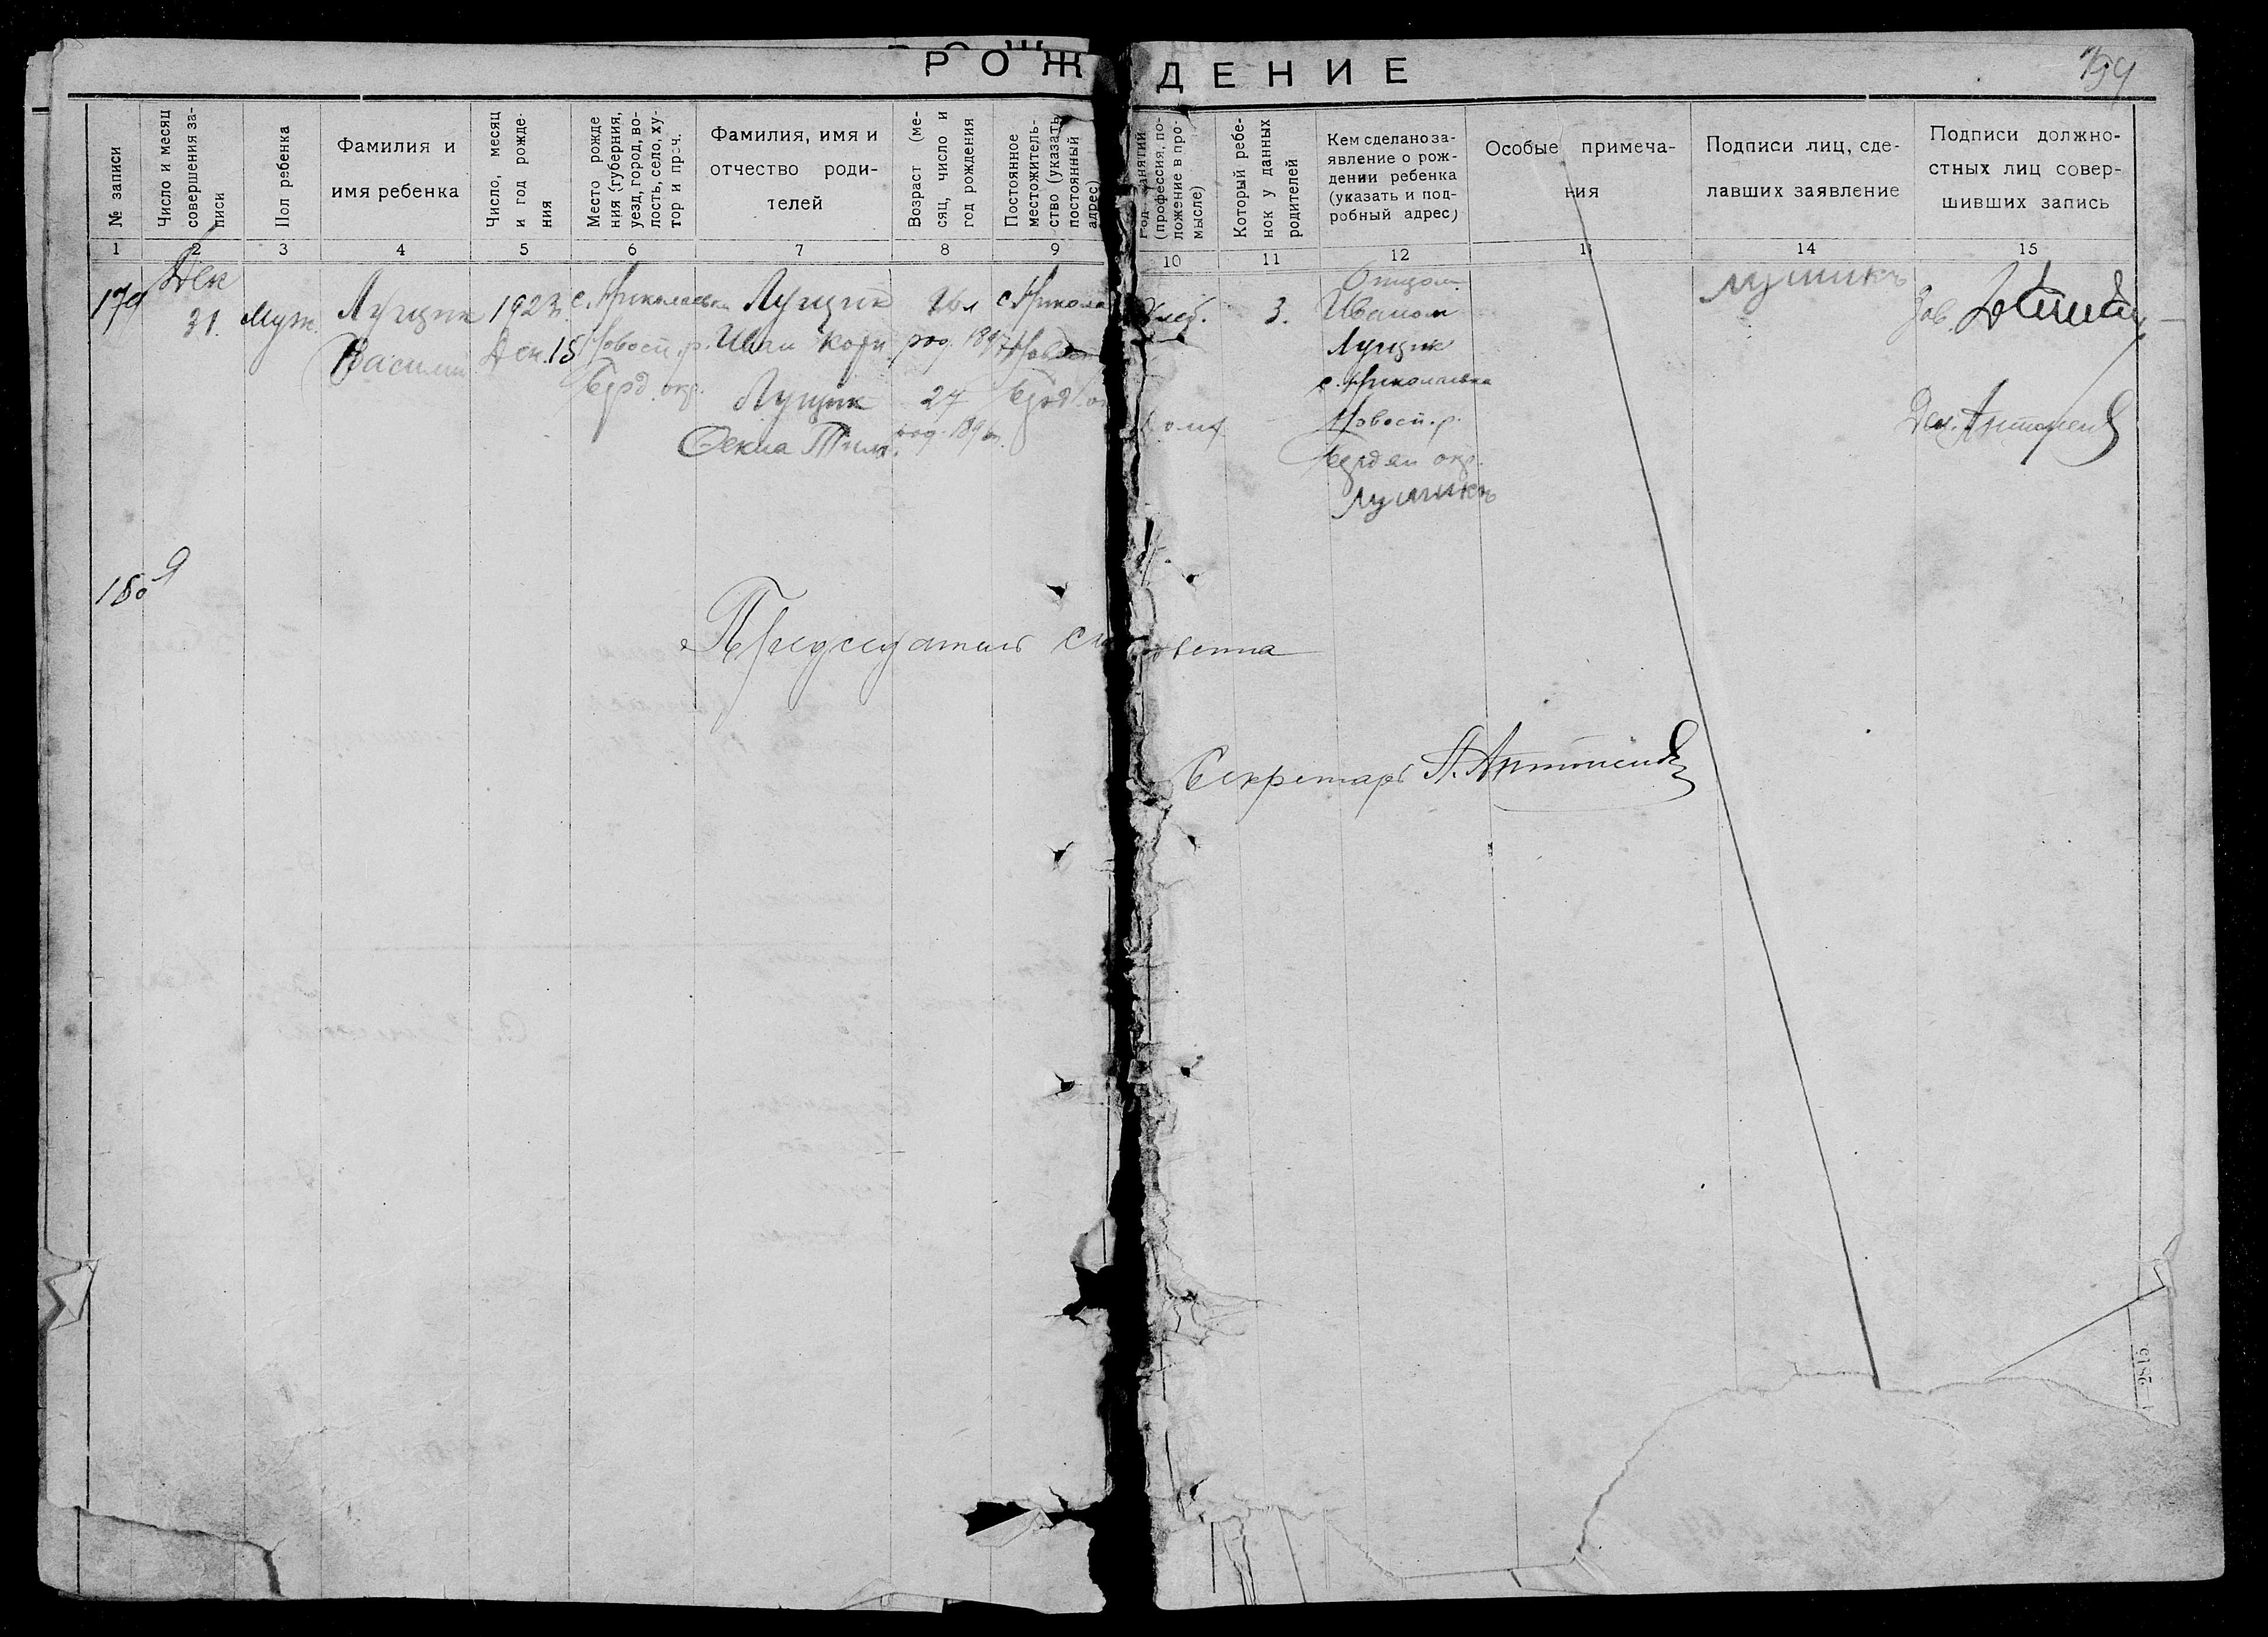 РОЖДЕНИЕ
№ записи
Число и месяц совершения записи
Пол ребенка
Фамилия и
имя ребенка
Число, месяц
и год рожде-
ния
Место рожде
ния (губерния,
уезд, город, во-
лость, село, ху-
тор и проч.
Фамилия, имя и
отчество роди-
телей
Возраст (ме-
сяц, число и
год рождения
Постоянное
местожитель-
ство (указать
постоянный
адрес)
Род занятий
(профессия, по-
ложение в про-
мысле)
Который ребе-
нок у данных
родителей
Кем сделано за-
явление о рож-
дении ребенка
(указать и под-
робный адрес)
Особые примеча-
ния
Подписи лиц, сде-
лавших заявление
Подписи должно-
стных лиц совер-
шивших запись
1 2 3 4 5 6 7 8 9 10 11 12 13 14 15
179
Дек
31.
Муж.
Лущик
Василий
1923
Дек. 15
с. Николаевка
Новосп. р.
Берд. окр.
Лущик
Иван Корн
Лущик
Фекла Тим.
26 л
род. 1897
27
род. 189
с Никола
Новосп
Берд. ок
Хлеб.
3.
Отцом
Иваном
Лущик
с. Николаевка
Новосп. р.
Бердян окр.
Лушикъ
Лушикъ
Зав.
Дел.
180
Председатель сельсовета
Секретарь